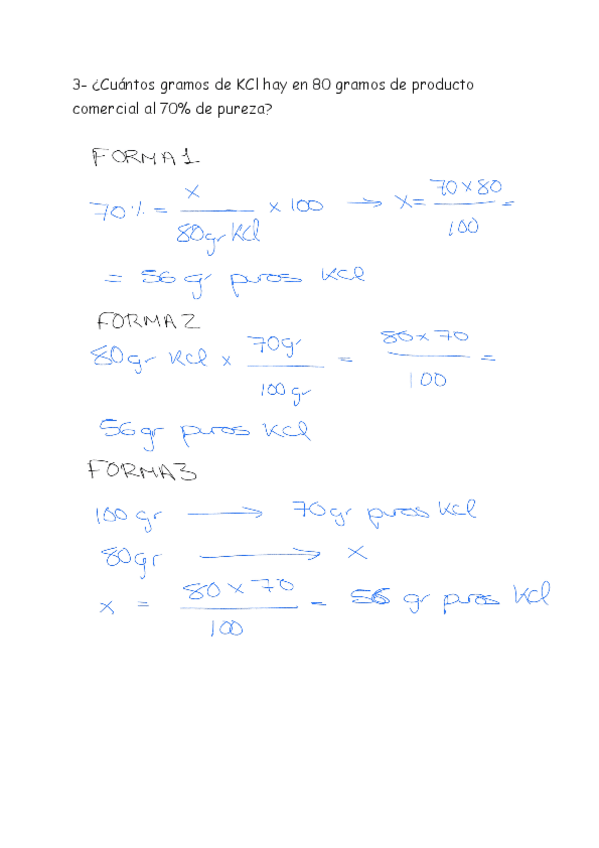 3- ¿Cuántos gramos de KCl hay en 80 gramos de producto
comercial al 70% de pureza?
FORMA 1
70% = x / 80gr KCl x 100 → x = 70 x 80 / 100 =
= 56 gr puros KCl
FORMA 2
80gr KCl x 70gr / 100 gr = 80 x 70 / 100 =
56gr puros KCl
FORMA 3
100 gr → 70gr puros KCl
80gr → x
x = 80 x 70 / 100 = 56 gr puros KCl